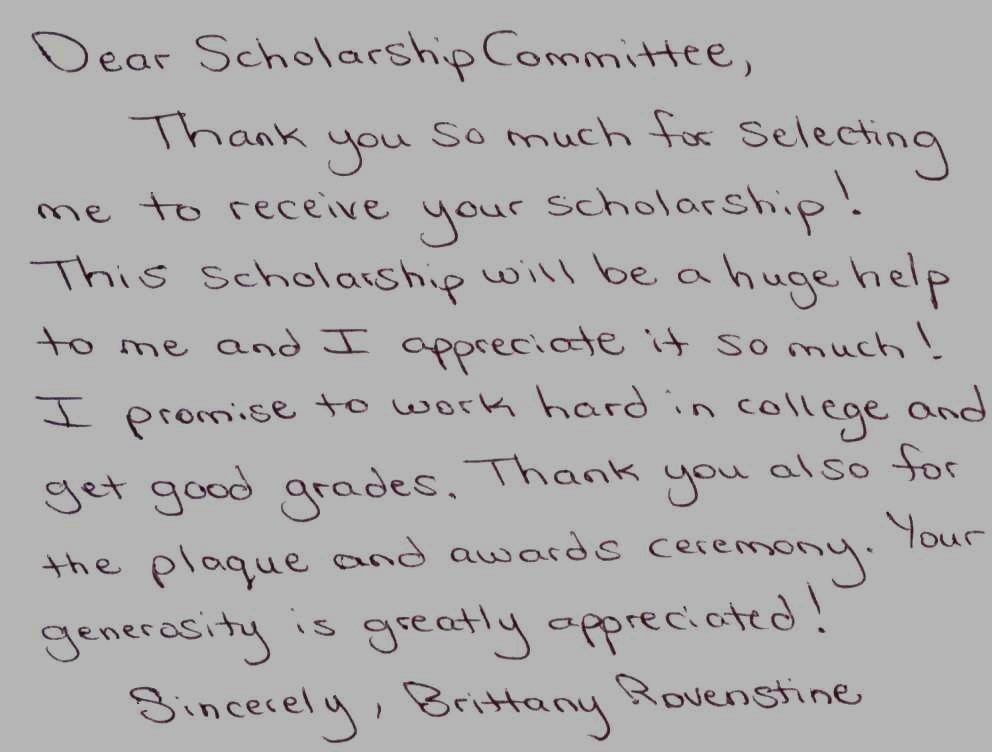 Dear Scholarship Committee,
Thank you so much for selecting
me to receive your scholarship!
This scholarship will be a huge help
to me and I appreciate it so much!
I promise to work hard in college and
get good grades. Thank you also for
the plaque and awards ceremony. Your
generosity is greatly appreciated!
Sincerely, Brittany Rovenstine